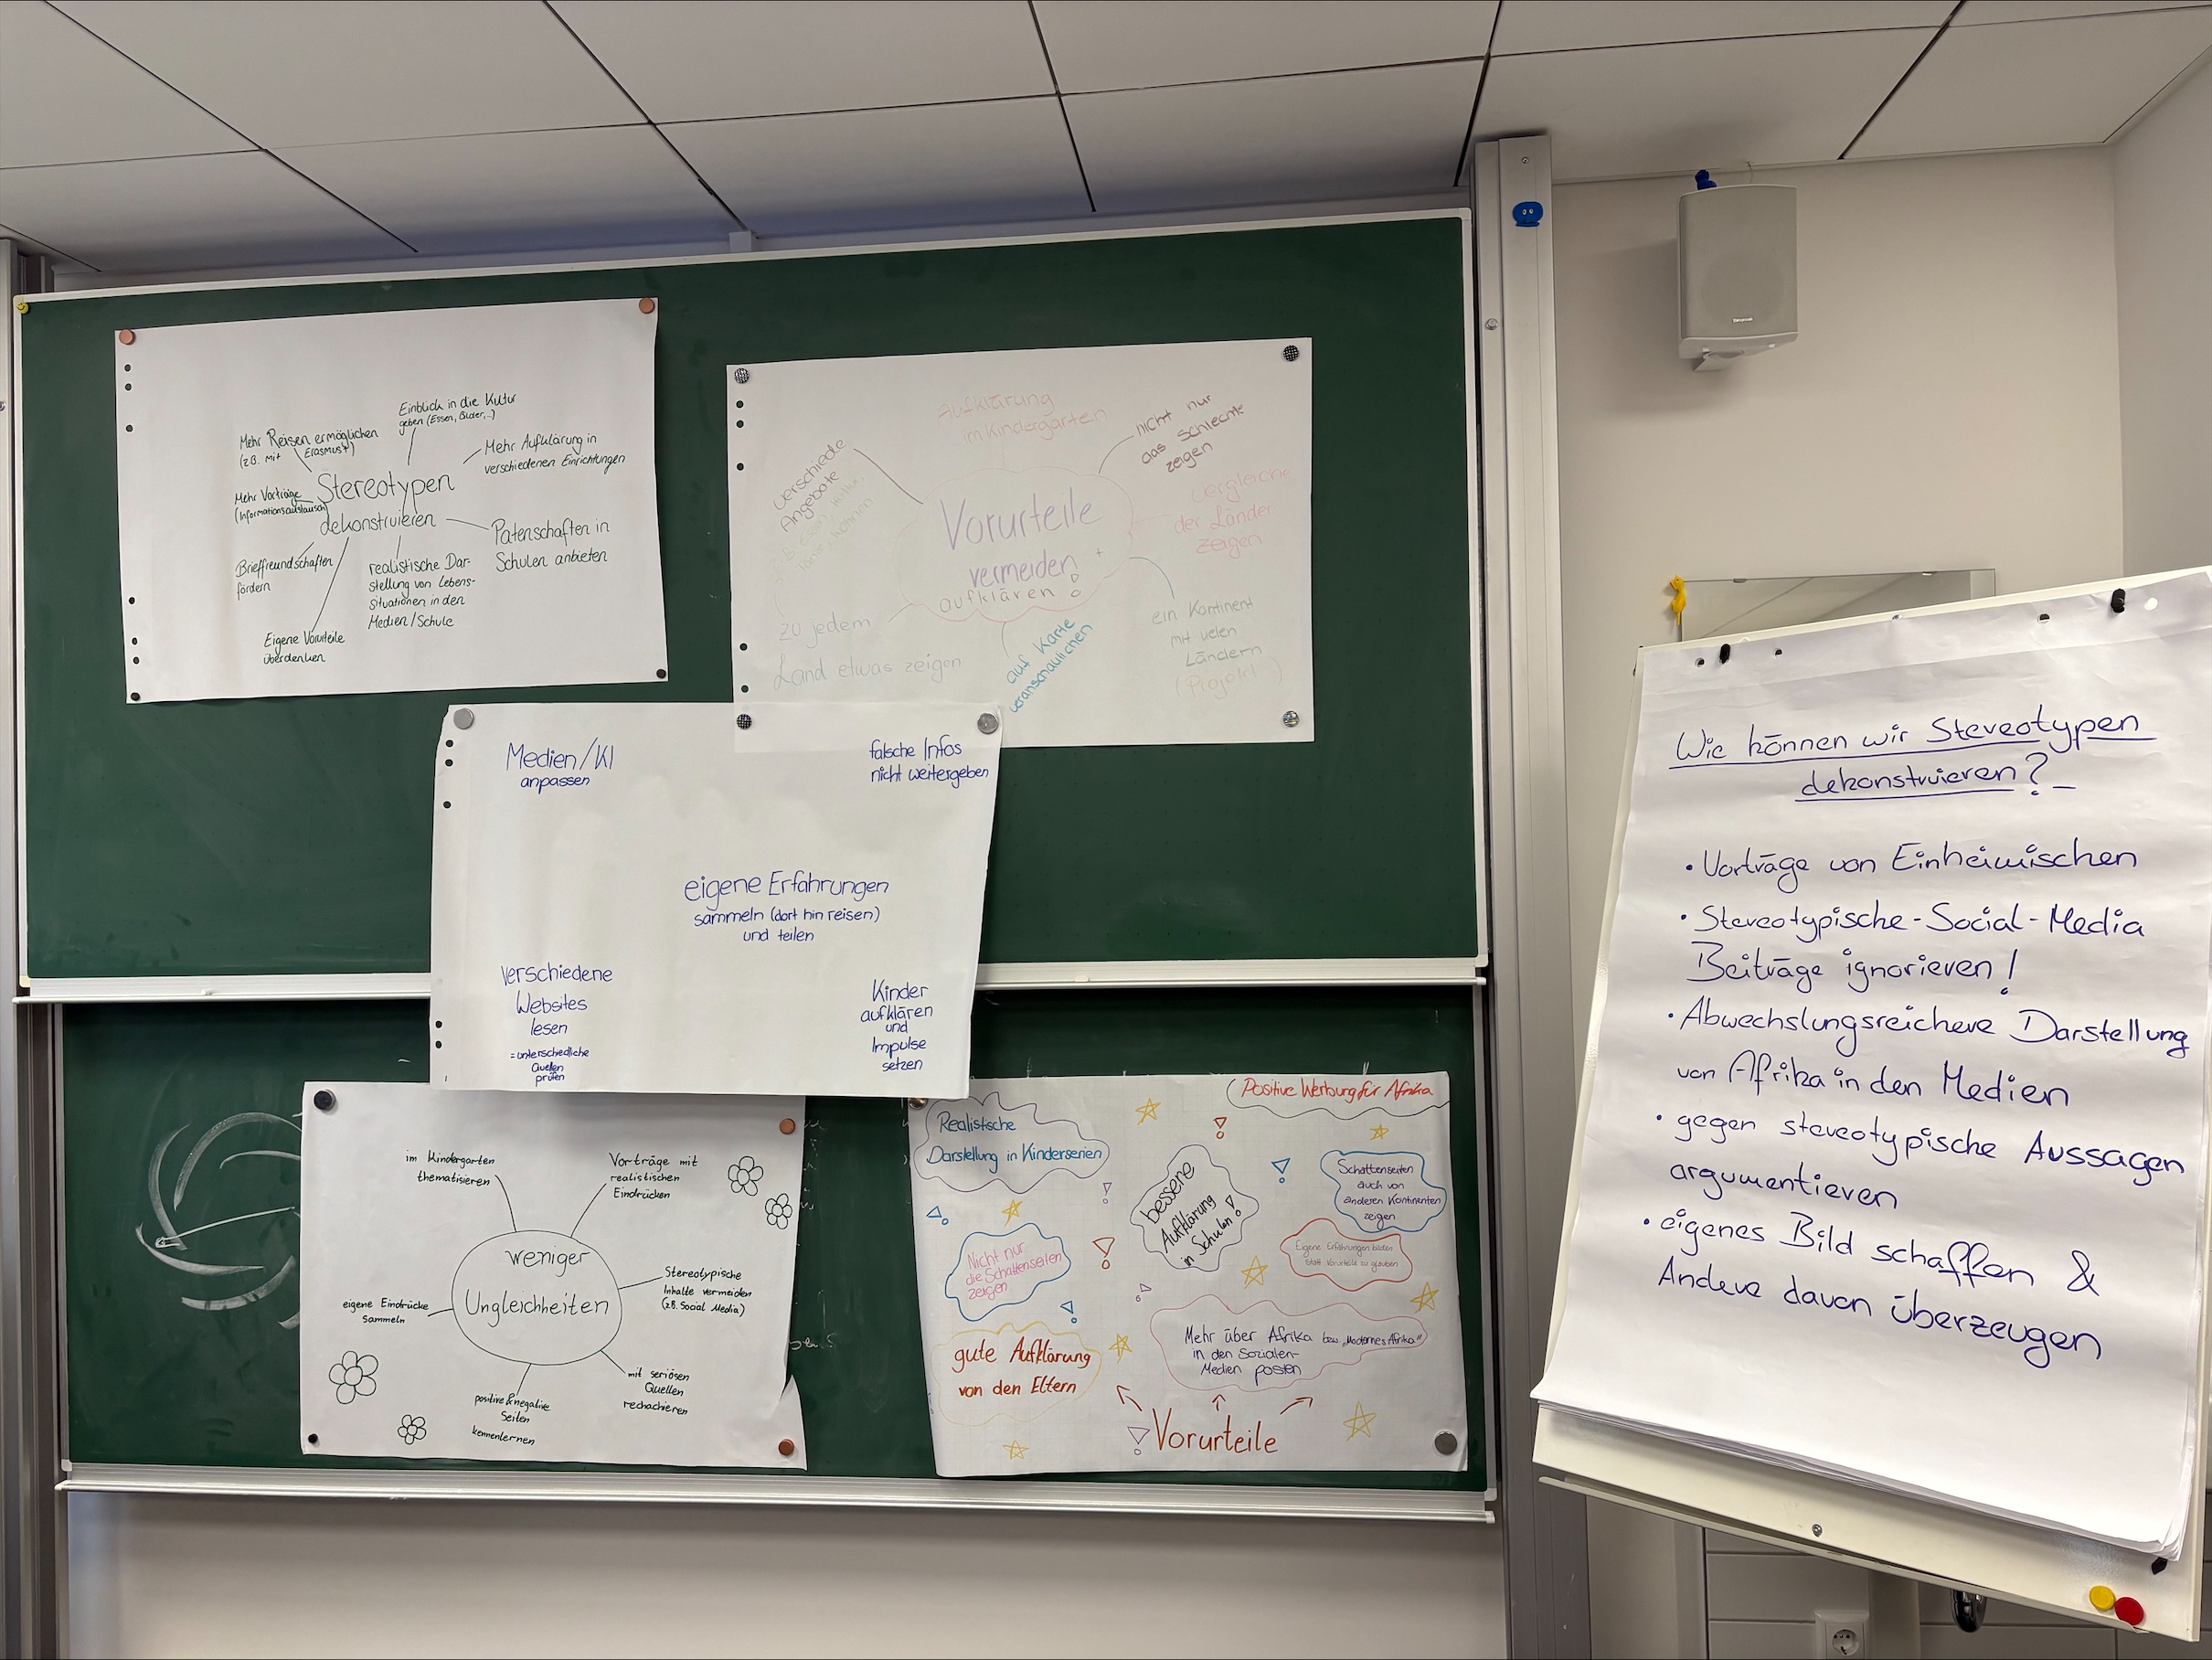 Einblick in die Kultur
geben (Essen, Bilder,..)
Mehr Reisen ermöglichen
(z.B. mit Erasmus+)
Mehr Aufklärung in
verschiedenen Einrichtungen
Stereotypen
dekonstruieren
Mehr Vorträge
(Informationsaustausch)
Patenschaften in
Schulen anbieten
Brieffreundschaften
fördern
realistische Dar-
stellung von Lebens-
situationen in den
Medien/Schule
Eigene Vorurteile
überdenken
Aufklärung
im Kindergarten
nicht nur
das schlechte
zeigen
verschiede
Angebote
z.B. Essen, Kultur,
Vergleiche
der Länder
zeigen
Vorurteile
vermeiden +
aufklären!
zu jedem
Land etwas zeigen
auf Karte
veranschaulichen
ein Kontinent
mit vielen
Ländern
(Projekt)
Medien/KI
anpassen
falsche Infos
nicht weitergeben
eigene Erfahrungen
sammeln (dort hin reisen)
und teilen
verschiedene
Websites
lesen
= unterschiedliche
Quellen
prüfen
Kinder
aufklären
und
Impulse
setzen
im Kindergarten
thematisieren
Vorträge mit
realistischen
Eindrücken
weniger
Ungleichheiten
Stereotypische
Inhalte vermeiden
(z.B. Social Media)
eigene Eindrücke
sammeln
mit seriösen
Quellen
rechachieren
positive & negative
Seiten
kennenlernen
Positive Werbung für Afrika
Realistsche
Darstellung in Kinderserien
bessene
Aufklärung
in Schulen!
Schattenseiten
auch von
anderen Kontinenten
zeigen
Nicht nur
die Schattenseiten
zeigen
Eigene Erfahrungen bilden
statt Vorurteile zu glauben
gute Aufklärung
von den Eltern
Mehr über Afrika bzw. „Modernes Afrika"
in den Sozialen-
Medien posten
Vorurteile
Wie können wir Stereotypen
dekonstruieren?
• Vorträge von Einheimischen
• Stereotypische-Social-Media
Beiträge ignorieren!
• Abwechslungsreichere Darstellung
von Afrika in den Medien
• gegen stereotypische Aussagen
argumentieren
• eigenes Bild schaffen &
Andere davon überzeugen